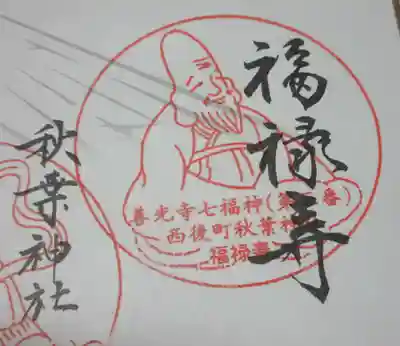 福禄寿
善光寺七福神(第 番)
西後町秋葉神
福禄寿
秋葉神社